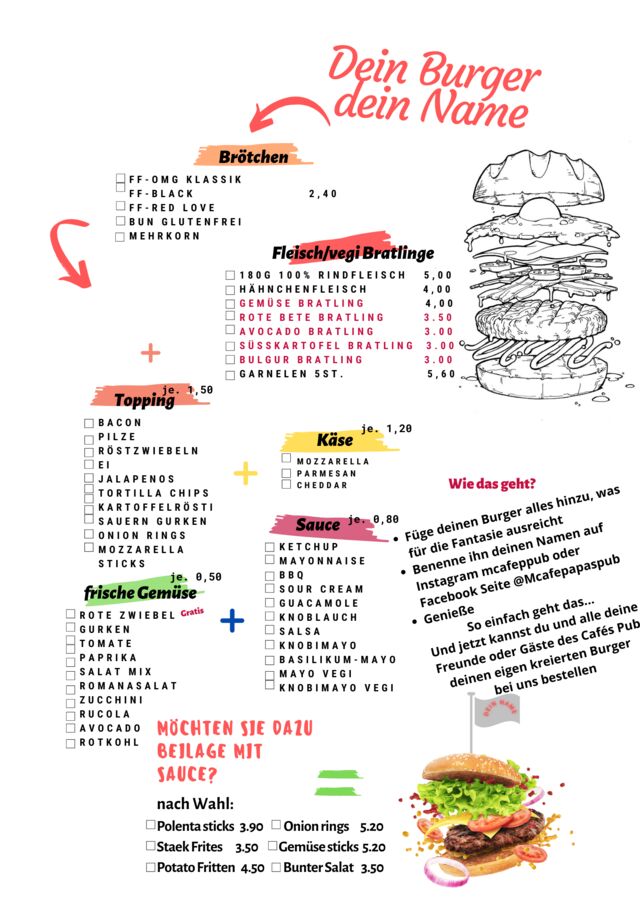 Dein Burger
dein Name
Brötchen
FF-OMG KLASSIK
FF-BLACK 2,40
FF-RED LOVE
BUN GLUTENFREI
MEHRKORN
Fleisch/vegi Bratlinge
180G 100% RINDFLEISCH 5,00
HÄHNCHENFLEISCH 4,00
GEMÜSE BRATLING 4,00
ROTE BETE BRATLING 3.50
AVOCADO BRATLING 3.00
SÜSSKARTOFEL BRATLING 3.00
BULGUR BRATLING 3.00
GARNELEN 5ST. 5,60
+
je. 1,50
Topping
BACON
PILZE
RÖSTZWIEBELN
EI
JALAPENOS
TORTILLA CHIPS
KARTOFFELRÖSTI
SAUERN GURKEN
ONION RINGS
MOZZARELLA
STICKS
+
je. 1,20
Käse
MOZZARELLA
PARMESAN
CHEDDAR
je. 0,80
Sauce
KETCHUP
MAYONNAISE
BBQ
SOUR CREAM
GUACAMOLE
KNOBLAUCH
SALSA
KNOBIMAYO
BASILIKUM-MAYO
MAYO VEGI
KNOBIMAYO VEGI
je. 0,50
frische Gemüse
ROTE ZWIEBEL Gratis
GURKEN
TOMATE
PAPRIKA
SALAT MIX
ROMANASALAT
ZUCCHINI
RUCOLA
AVOCADO
ROTKOHL
+
Wie das geht?
• Füge deinen Burger alles hinzu, was
für die Fantasie ausreicht
• Benenne ihn deinen Namen auf
Instagram mcafeppub oder
Facebook Seite @Mcafepapaspub
• Genieße
So einfach geht das...
Und jetzt kannst du und alle deine
Freunde oder Gäste des Cafés Pub
deinen eigen kreierten Burger
bei uns bestellen
DEIN NAME
MÖCHTEN SIE DAZU
BEILAGE MIT
SAUCE?
=
nach Wahl:
Polenta sticks 3.90 Onion rings 5.20
Staek Frites 3.50 Gemüse sticks 5.20
Potato Fritten 4.50 Bunter Salat 3.50